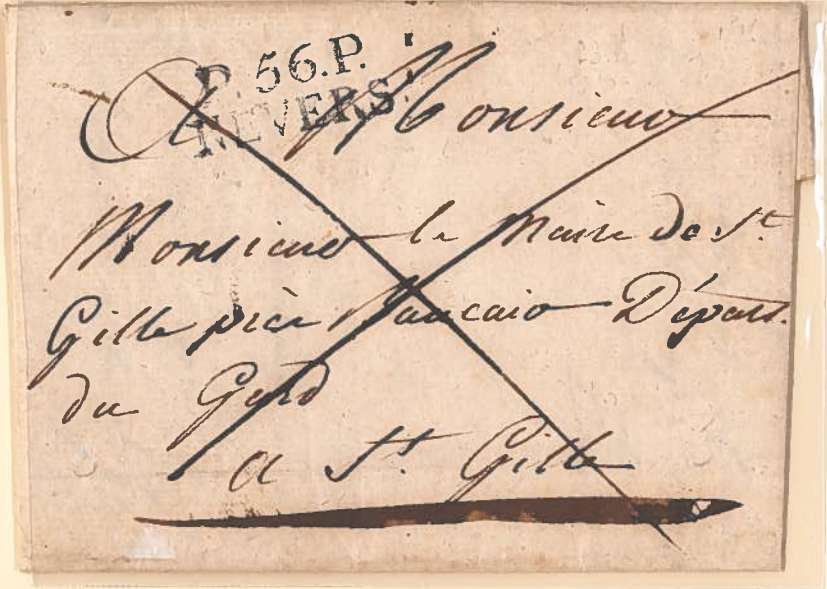 P. 56. P.
NEVERS.
A Monsieur
Monsieur le Maire de St.
Gille près Baucaire Départ.
du Gard
a St. Gille